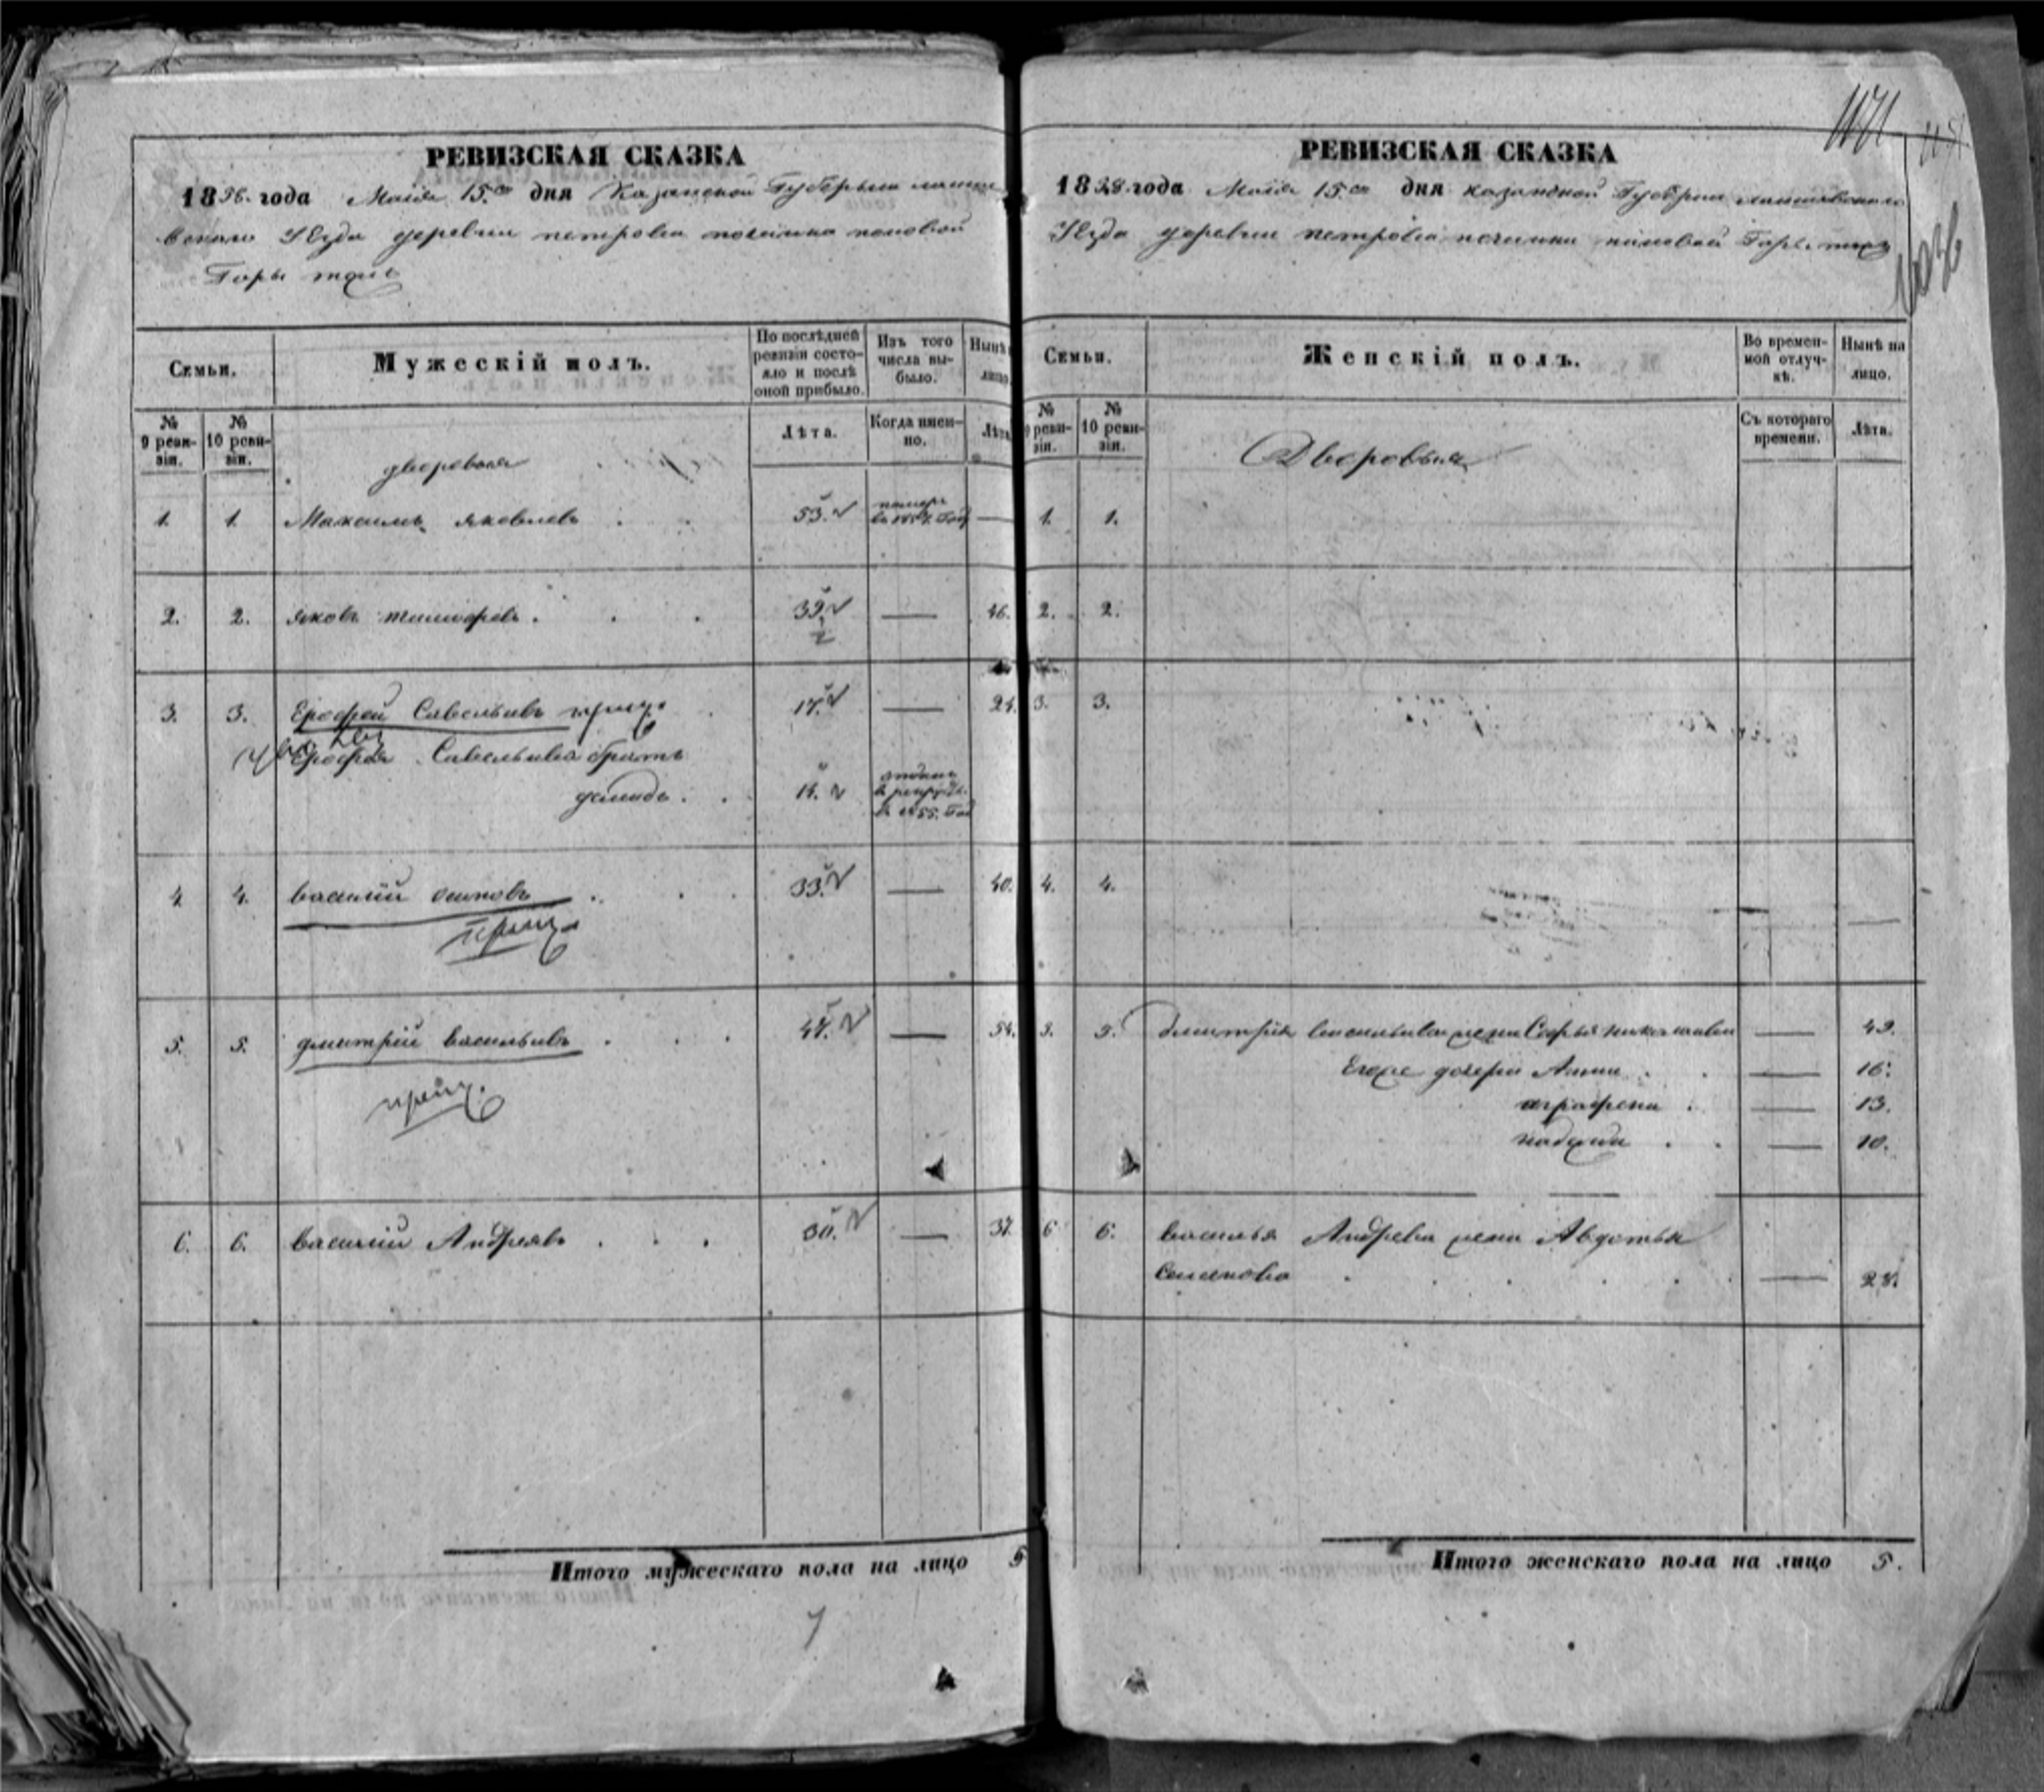 РЕВИЗСКАЯ СКАЗКА
1858. года Маия 15.го дня Казанской Губерніи лаише
вскаго Уѣзда деревни петровка починка поповой
Горы тожъ
Семьи.
Мужескій полъ.
По послѣдней ревизіи состояло и послѣ оной прибыло.
Изъ того числа выбыло.
Нынѣ на лицо.
№ 9 ревизіи.
№ 10 ревизіи.
Лѣта.
Когда именно.
Лѣта
дворовыя
1. 1. Максимъ яковлевъ 53. померъ въ 1857. Году —
2. 2. яковъ тимофеевъ 39. — 46.
3. 3. Ерофей Савельивъ 17. — 24.
Ерофея Савельива братъ
демидъ 14. отданъ в рекруты в 1855. Год
4 4. василій осиповъ 33. — 40.
5. 5. дмитрій васильивъ 47. — 54.
6. 6. василій Андреявъ 30. — 37.
Итого мужескаго пола на лицо 5
7
1171
РЕВИЗСКАЯ СКАЗКА
1858. года Маия 15.го дня казанской Губерніи лаишевскаго
Уѣзда деревни петровка починка поповой Горы тожъ
Семьи.
Женскій полъ.
Во временной отлучкѣ.
Нынѣ на лицо.
№ 9 ревизіи.
№ 10 ревизіи.
Съ котораго времени.
Лѣта.
Дворовыя
1. 1.
2. 2.
3. 3.
4. 4. —
5. 5. дмитрия васильива жена Софья николаива — 49.
Егоже дочери Анна — 16.
аграфена — 13.
надежда — 10.
6 6. василья Андрева жена Авдотья
Семенова — 28.
Итого женскаго пола на лицо 5.